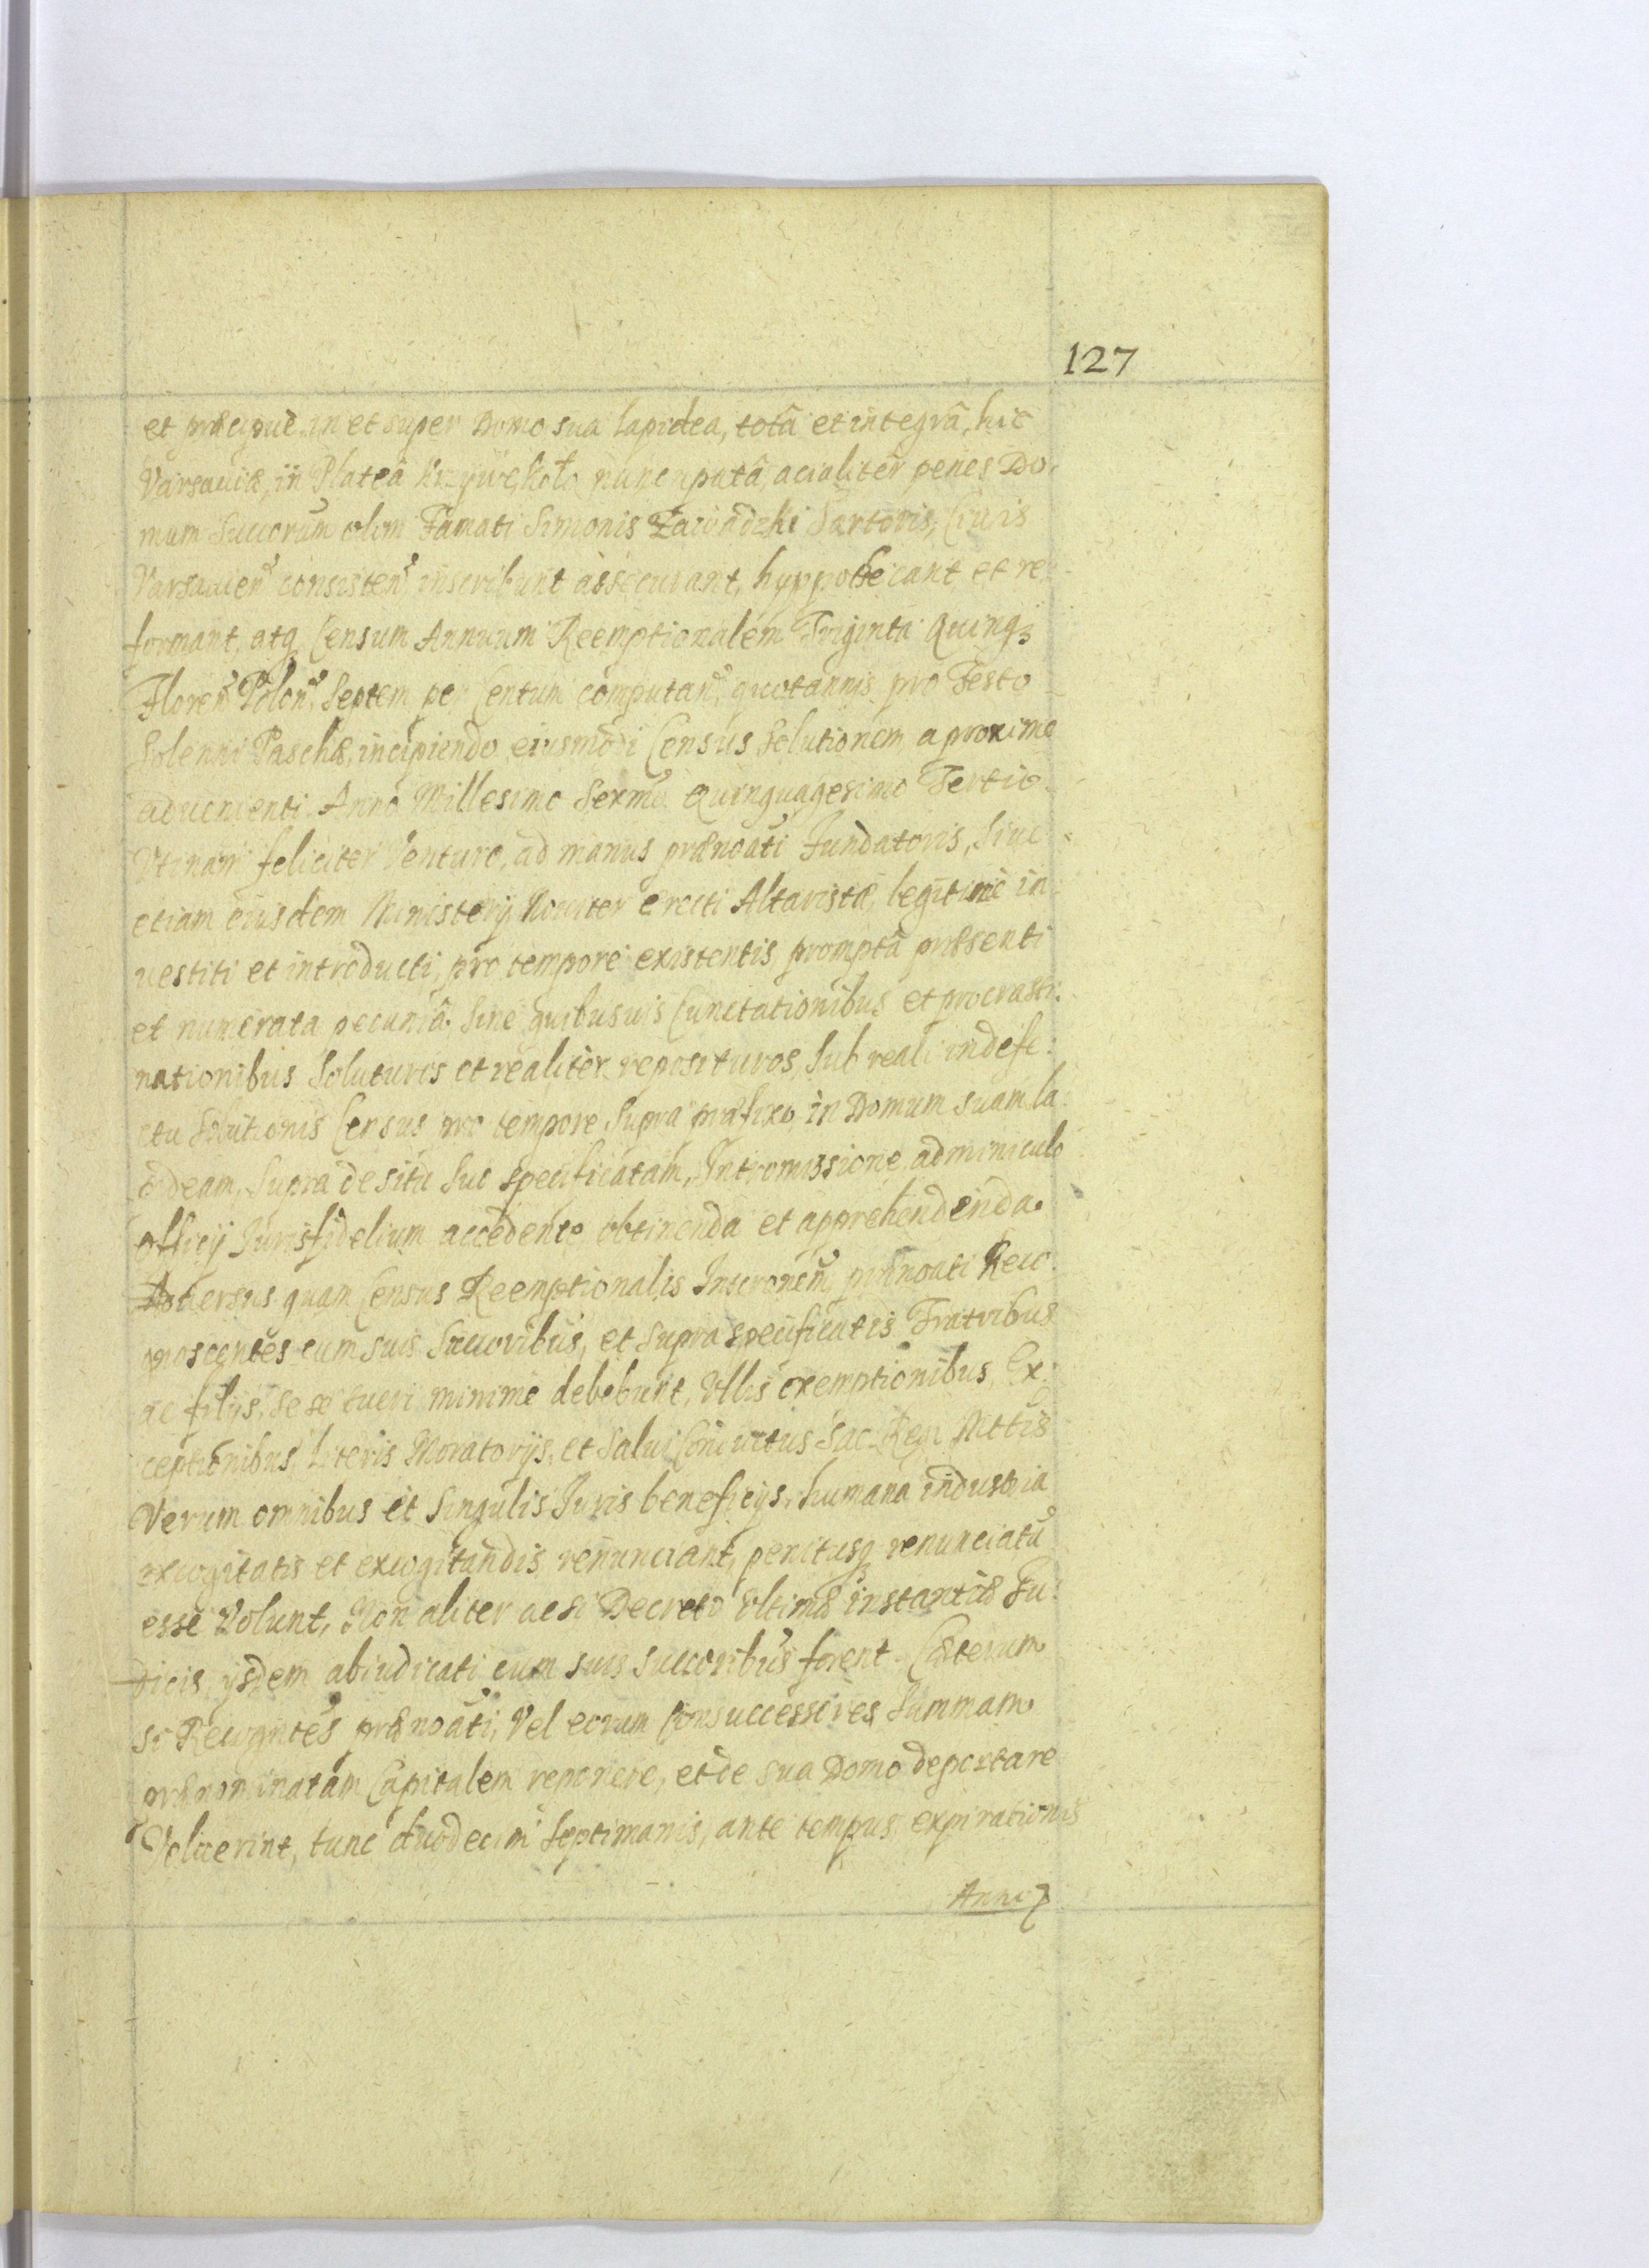 127
et præcipuè in et super Domo sua lapidea, totâ et integrâ, hic
Varsauiæ, in Plateâ Krzywekoło nuncupatâ, acialiter penes Do-
mum Succorum olim Famati Simonis Zawadzki Sartoris, Ciuis
Varsauien consisten inscribunt assecurant, hyppothecant, et re-
formant, atq Censum Annuum Reemptionalem Triginta Quinqz
Floren Polon, Septem per Centum computan, quotannis pro Festo
Solenni Paschæ, incipiendo eiusmodi Census Solutionem a proxime
aduenienti Anno Millesimo Sexmo Quinquagesimo Tertio
Vtinam feliciter Venturo, ad manus prænoati Fundatoris, Siue
etiam eiusdem Ministerij Nouiter erecti Altaristæ, legitimè in
uestiti et introducti, pro tempore existentis, promptâ præsenti
et numerata pecuniâ. Sine quibusuis Cunctationibus et procrasti-
nationibus Soluturos et realiter reposituros, Sub reali in defe:
ctu Solutionis Census pro tempore Supra præfixo, in Domum suam la:
pideam, Supra de situ suo specificatam, Intromissione, adminiculo
officij Jurisfidelium accedente obtinenda et apprehendenda.
Aduersus quam Census Reemptionalis Inscronem, prænoati Reco:
gnoscentes cum suis Succoribus, et Supra specificatis Fratribus
ac filijs, se se tueri minimè debebunt, Vllis exemptionibus, Ex:
ceptionibus, Literis Moratorijs, et Salui Conductus Sac. Regi Mttis
Verum omnibus et Singulis Juris beneficijs, humana industria
excogitatis et excogitandis renunciant, penitusqz renunciatu
esse Volunt, Non aliter ac si Decreto Vltimæ instantiæ Ju:
dicis ijsdem abiudicati cum suis succoribus forent. Cæterum
si Recogntes prænoati, Vel eorum Consuccessores Summam
prænominatam Capitalem reponere, et de sua Domo deportare
Voluerint, tunc duodecim Septimanis, ante tempus expirationis
Anni